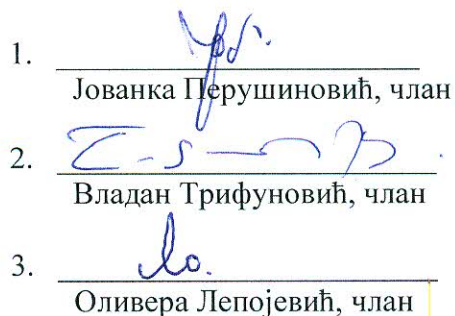 1.
Јованка Перушиновић, члан
2.
Владан Трифуновић, члан
3.
Оливера Лепојевић, члан